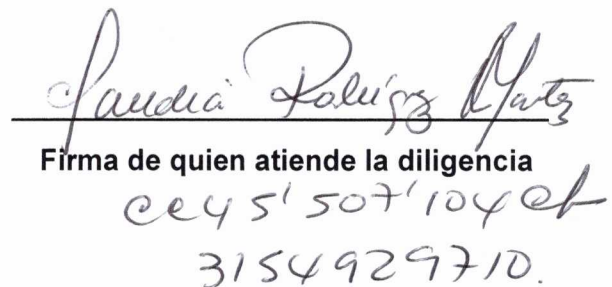 Claudia Rodríguez Martz
Firma de quien atiende la diligencia
CC 45'507'104 Ct
3154929710.